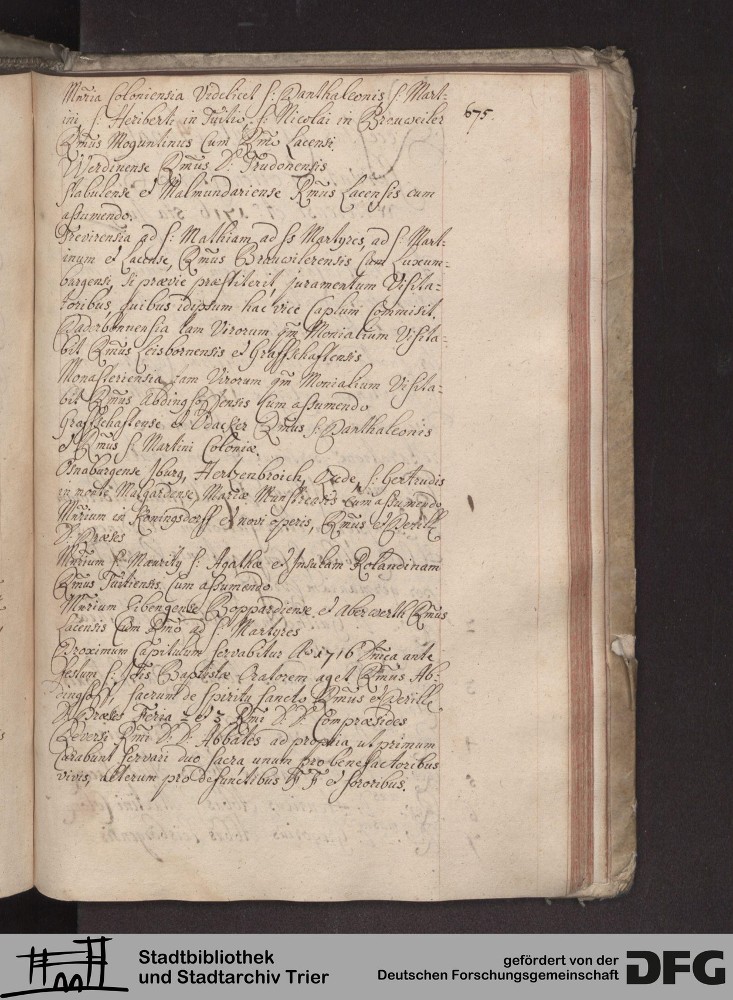 Mñria Coloniensia Videlicet S: Panthaleonis S: Mart-
ini S: Heriberti in Tuitio, S: Nicolai in Breuweiler
675.
Rmus Moguntinus Cum Rmo Lacensi
Werdinense Rmus S: Trudonensis
Stabulense et Malmundariense Rmus Lacensis cum
assumendo.
Trevirensia ad S: Mathiam, ad SS Martyres, ad S: Mart-
inum et Lacense, Rmus Brauwilerensis Cum Luxem-
burgensi, si praevie praestiterit juramentum Visita-
toribus, quibus idipsum hac vice Caplum Commisit.
Paderbonnensia tam Virorum qm Monialium Visita-
bit Rmus Leisbornensis et Graffschaftensis
Monasteriensia tam Virorum qm Monialium Visita-
bit Rmus Abdinghoffensis Cum assumendo
Graffschaftense et Odacker Rmus S: Panthaleonis
et Rmus S: Martini Coloniae.
Osnaburgense Iburg, Hertzenbroich, Oude, S: Gertrudis
in monte Malgardense Mariae Munstrensis Cum assumendo
Mñrium in Koningsdorff et novi operis, Rmus et Perill
D. Praeses
Mñrium S: Mauritij S: Agathae et Insulam Rolandinam
Rmus Tuitiensis Cum assumendo
Mñrium Sibergense Boppardiense et Aberwerth Rmus
Lacensis Cum Rmo ad S: Martyres
Proximum Capitulum servabitur Ao 1716 Dnica ante
festum S: Jois Baptistae Oratorem aget Rmus Ab-
dinghoff, sacrum de Spiritu Sancto Rmus et Perill
D. Praeses Feria 2 et 3 Rmi D. D. Compraesides
Reversi Rmi D. D. Abbates ad propria, ut primum
Curabunt servari duo sacra unum pro benefactoribus
vivis, alterum pro defunctibus FF et sororibus.
Stadtbibliothek
und Stadtarchiv Trier
gefördert von der
Deutschen Forschungsgemeinschaft
DFG